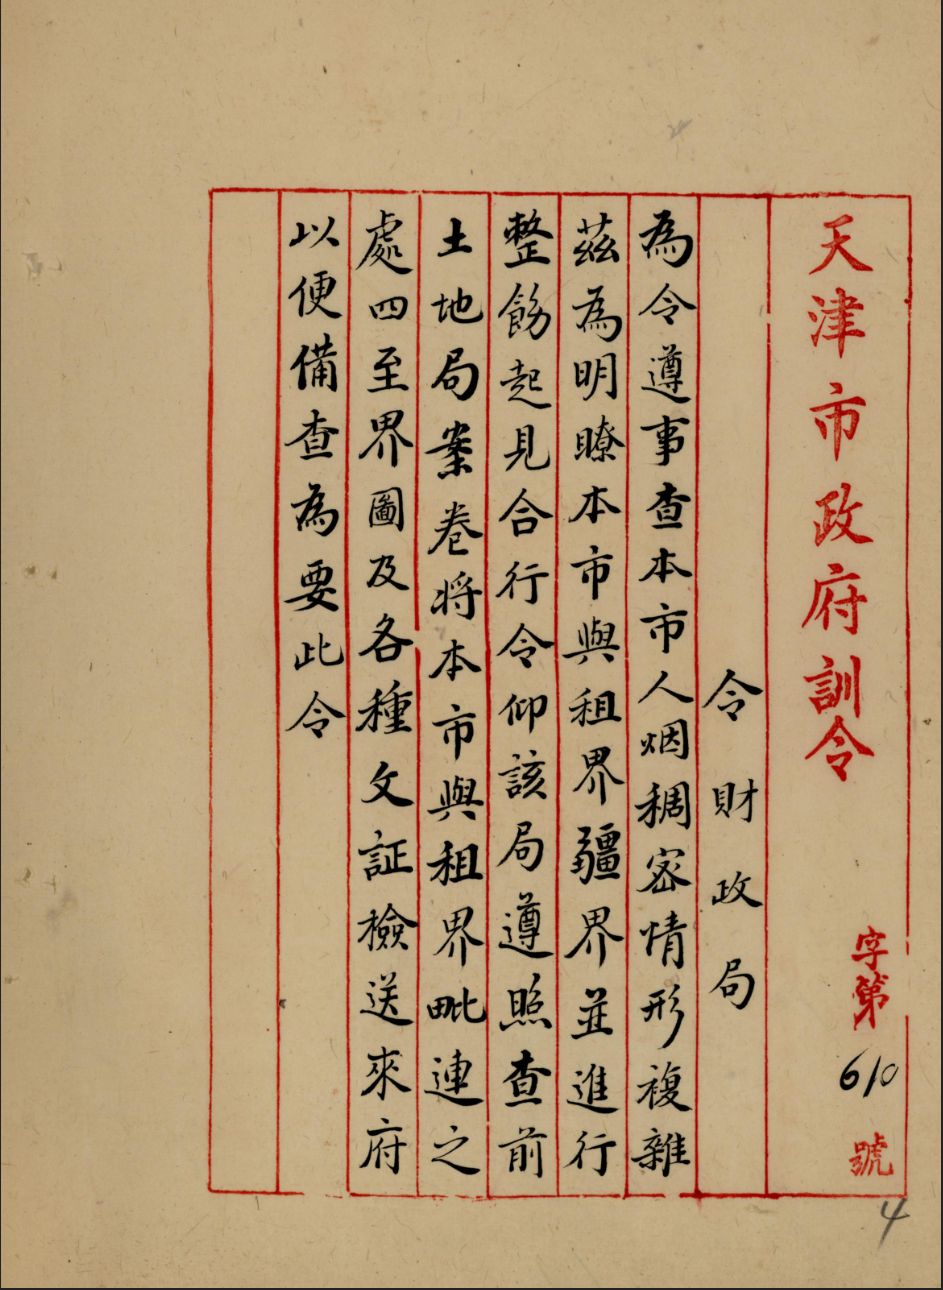 天津市政府訓令
字第610號
令財政局
為令遵事查本市人烟稠密情形複雜
茲為明瞭本市與租界疆界並進行
整飭起見合行令仰該局遵照查前
土地局案卷將本市與租界毗連之
處四至界圖及各種文証檢送來府
以便備查為要此令
4